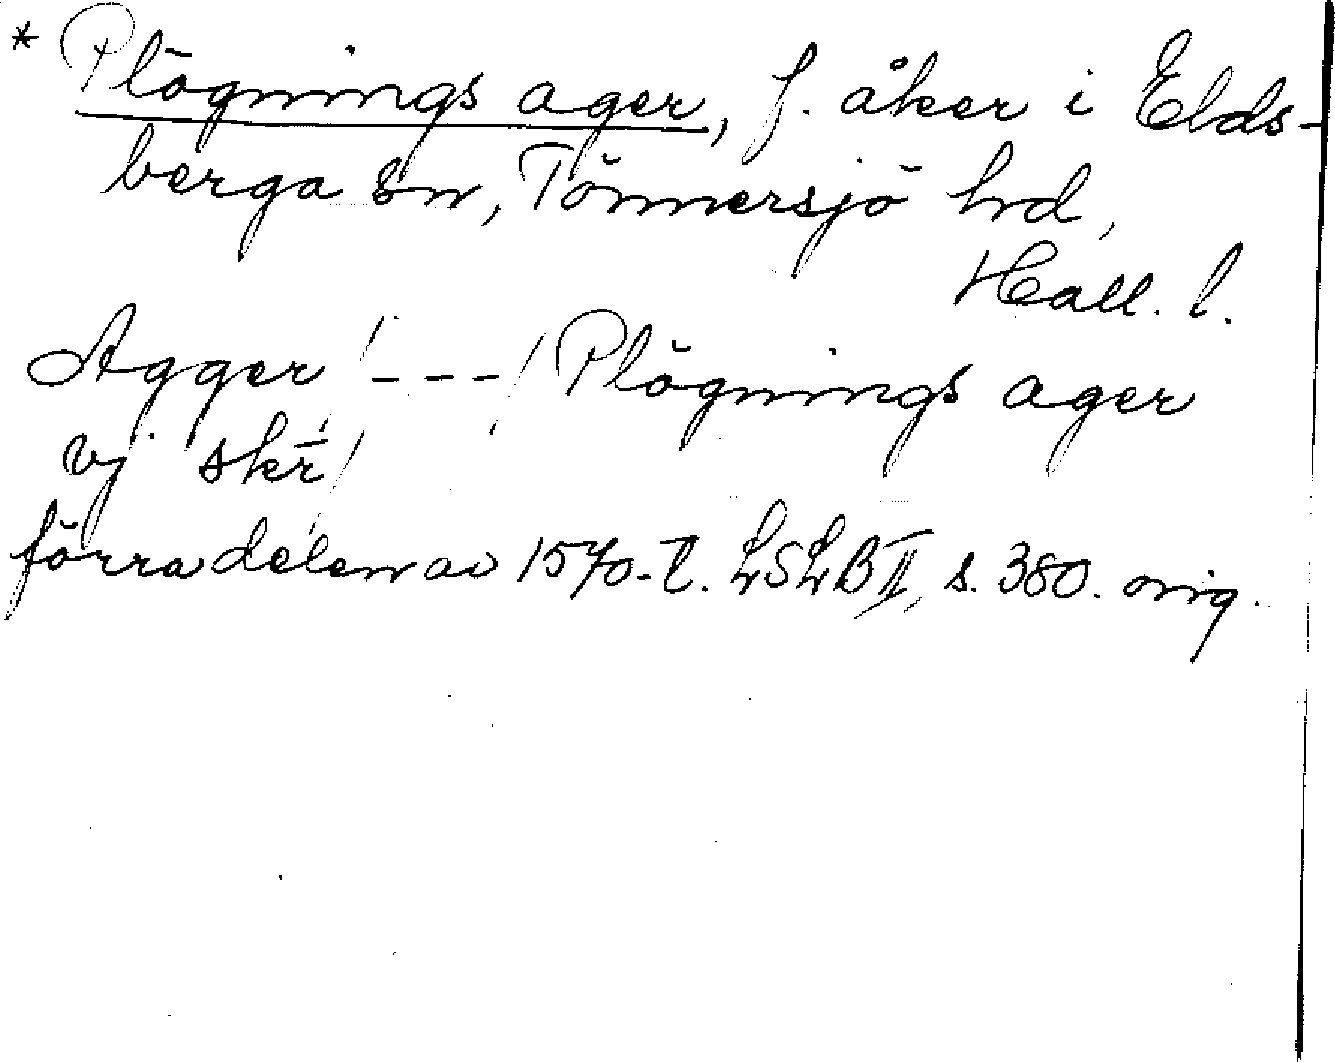 * Plögnings ager, f. åker i Elds-
berga sn, Tönnersjö hd,
Hall. l.
Agger / - - - / Plögnings ager
vj skr̄ /
förra delen av 1570-t. LSLB II, s. 380. orig.